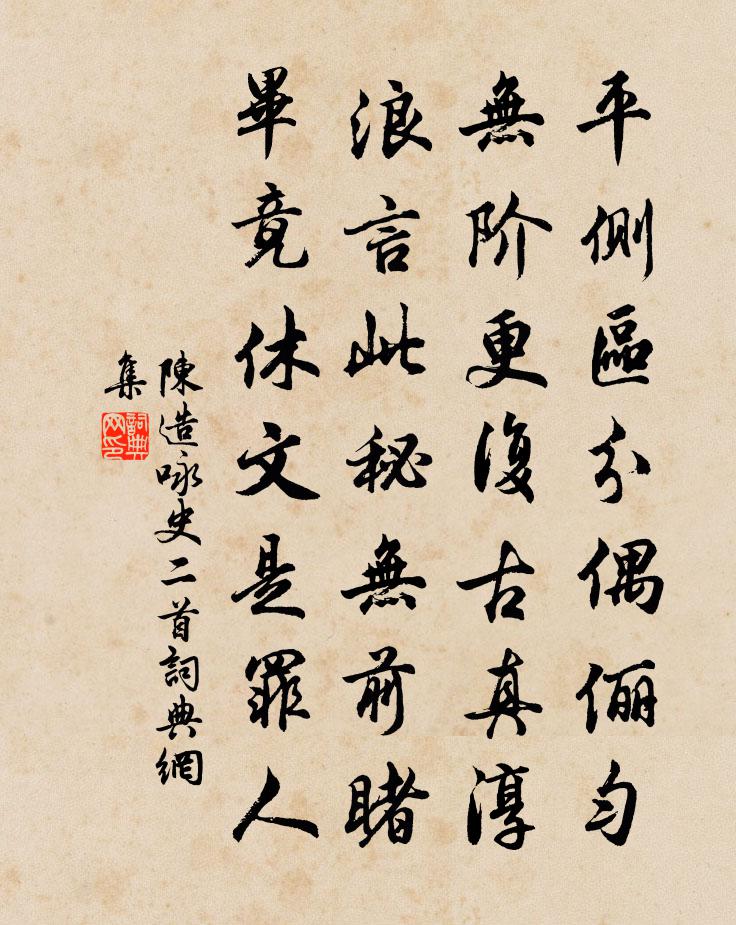 平側區分偶俪匀
無阶更復古真淳
浪言此秘無前睹
畢竟休文是罪人
陳造咏史二首詞典網
集
詞典
网印